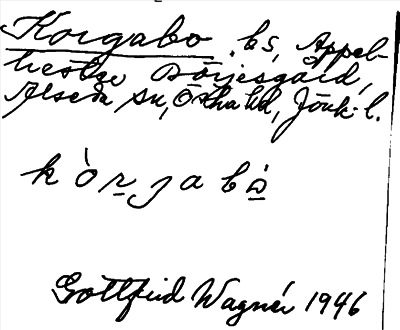 Korgabo, bs, Appel-
Börjesgård,
Alseda sn, Ö hd, Jönk. l.
kòrjabó
Gottfrid Wagnér 1946